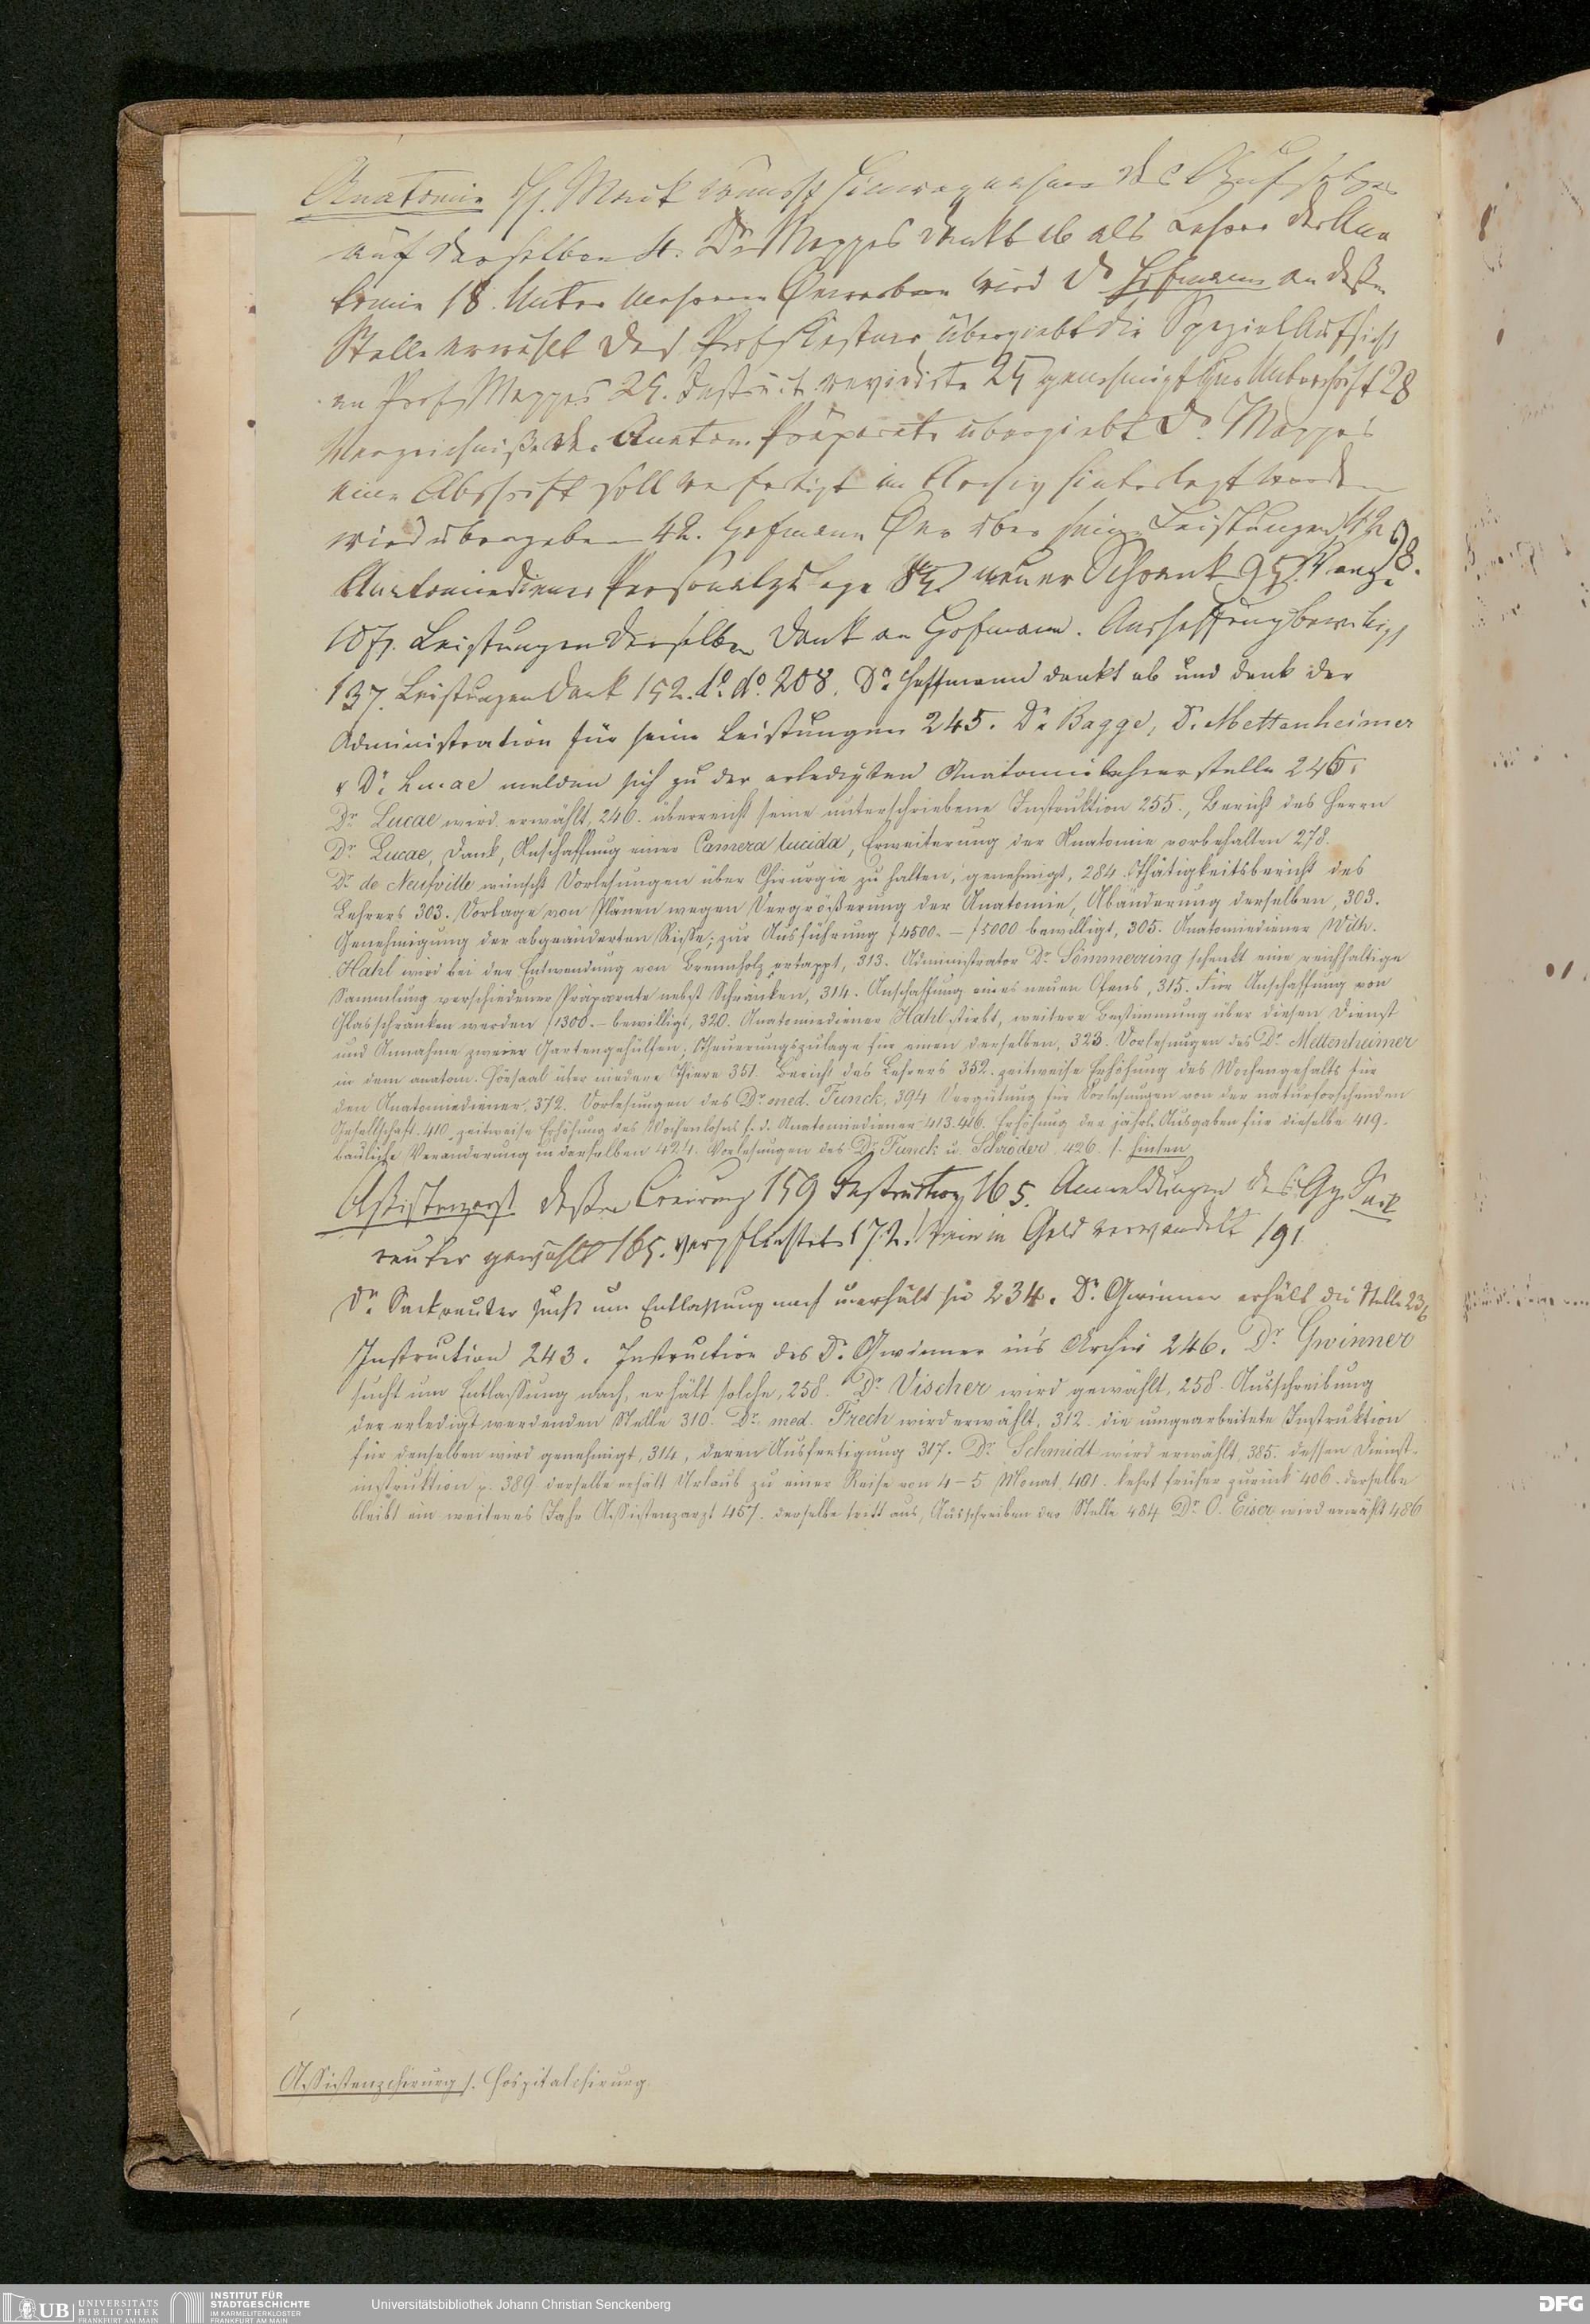 Anatomie H. Mack
auf derselben 4. Dr Mappes dankt ab als Lehrer der Ana
tomie 18. Unter mehreren wird Dr Hofmann an deßen
Stelle erwählt Prof Kestner übergiebt die SpezialAufsicht
an Prof Mappes 25. Instruct. revidirte 25 genehmigt Unterschrift 28
Verzeichniße der Anatom. Präparate übergiebt Dr. Mappes
eine Abschrift soll verfertigt im Archiv hinterlegt werden
wird übergeben 42. Hofmann über seine Leistungen
Anatomiediener Personalzulage neuer Schrank 95.
107. Leistungen derselben Dank an Hofmann. Anschaffung bewilligt
137. Leistungen Dank 152. do. do. 208. Dr. Hoffmann dankt ab und dank der
Administration für seine Leistungen 245. Dr Bagge, Dr. Mettenheimer
& Dr. Lucae melden sich zu der erledigten Anatomielehrerstelle 246.
Dr. Lucae wird erwählt, 246. überreicht seine unterschriebene Instruktion 255., Bericht des Herrn
Dr. Lucae, Dank, Anschaffung einer Camera lucida, Erweiterung der Anatomie vorbehalten 278.
Dr. de Neufville wünscht Vorlesungen über Chirurgie zu halten, genehmigt, 284. Thätigkeitsbericht des
Lehrers 303. Vorlage von Plänen wegen Vergrößerung der Anatomie, Abänderung derselben, 303.
Genehmigung der abgeänderten Risse; zur Ausführung f 4500.- – f 5000 bewilligt, 305. Anatomiediener Wilh.
Hahl wird bei der Entwendung von Brennholz ertappt, 313. Administrator Dr. Sömmerring schenkt eine reichhaltige
Sammlung verschiedener Präparate nebst Schränken, 314. Anschaffung eines neuen Ofens, 315. Für Anschaffung von
Glasschränken werden f 1300.- bewilligt, 320. Anatomiediener Hahl stirbt, weitere Bestimmung über diesen Dienst
und Annahme zweier Gartengehülfen; Theuerungszulage für einen derselben, 323. Vorlesungen des Dr. Mettenheimer
in dem anatom. Hörsaal über niedere Thiere 351. Bericht des Lehrers 352. zeitweise Erhöhung des Wochengehalts für
den Anatomiediener, 372. Vorlesungen des Dr. med. Funck, 394 Vergütung für Vorlesungen von der naturforschenden
Gesellschaft. 410. zeitweise Erhöhung des Wochenlohns f. d. Anatomiediener 413. 416. Erhöhung der jährl. Ausgaben für dieselbe 419.
bauliche Veränderung in derselben 424. Vorlesungen des Dr. Funck u. Schröder, 426. s. hinten
Aßistenzarzt deßen Creirung 159 Instruction 165. Anmeldungen des Sack
reuter gewählt 165. verpflichtet 172. Wein in Geld verwandelt 191
Dr. Sackreuter sucht um Entlassung nach u erhält sie 234. Dr. Gwinner erhält die Stelle 236
Instruction 243. Instruction des Dr. Gwinner in's Archiv 246. Dr. Gwinner
sucht um Entlassung nach, erhält solche, 258. Dr. Vischer wird gewählt, 258. Ausschreibung
der erledigt werdenden Stelle 310. Dr. med. Frech wird erwählt, 312. die umgearbeitete Instruktion
für denselben wird genehmigt, 314, deren Ausfertigung 317. Dr. Schmidt wird erwählt, 385. dessen Dienst-
instruktion p. 389 derselbe erhält Urlaub zu einer Reise von 4–5 Monat, 401. kehrt früher zurück 406. derselbe
bleibt ein weiteres Jahr Assistenzarzt 457. derselbe tritt aus, Ausschreiben der Stelle 484 Dr. O. Eiser wird erwählt 486
Assistenzchirurg s. Hospitalchirurg.
UB UNIVERSITÄTS BIBLIOTHEK FRANKFURT AM MAIN
INSTITUT FÜR STADTGESCHICHTE IM KARMELITERKLOSTER FRANKFURT AM MAIN
Universitätsbibliothek Johann Christian Senckenberg
DFG